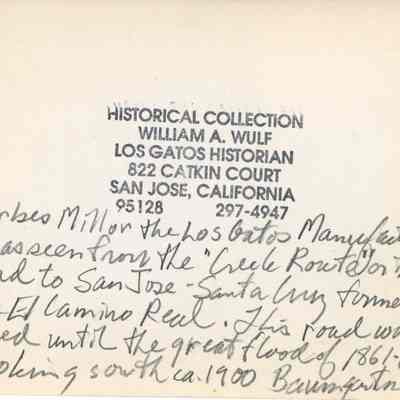 HISTORICAL COLLECTION
WILLIAM A. WULF
LOS GATOS HISTORIAN
822 CATKIN COURT
SAN JOSE, CALIFORNIA
95128 297-4947
rbes Mill or the Los Gatos Manufact
as seen from the "Creek Route" or
ad to San Jose - Santa Cruz forme
El Camino Real. This road wa
ed until the great flood of 1861-
oking south ca. 1900 Baumgartn